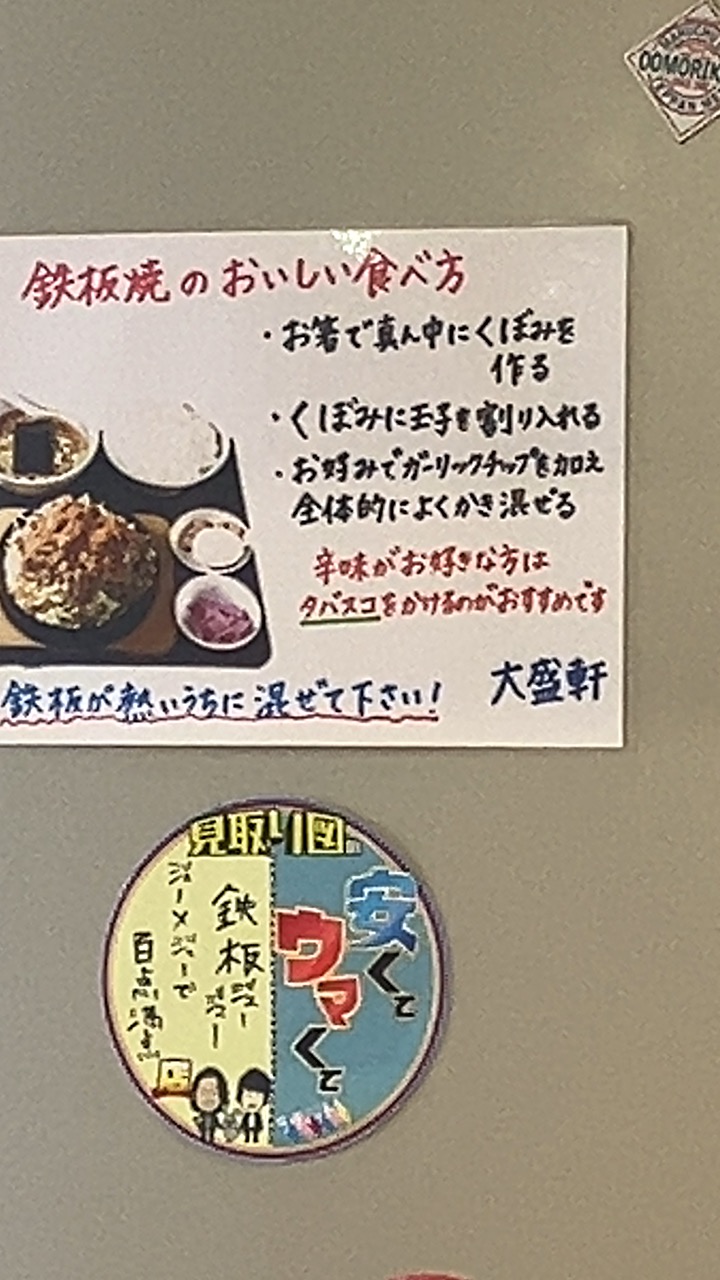 OOMORIK
鉄板焼のおいしい食べ方
・お箸で真ん中にくぼみを
作る
・くぼみに玉子を割り入れる
・お好みでガーリックチップを加え
全体的によくかき混ぜる
辛味がお好きな方は
タバスコをかけるのがおすすめです
鉄板が熱いうちに混ぜて下さい!
大盛軒
見取り図の
安くて
ウマくて
鉄板ジュージュー
ジューメジューで
百点満点